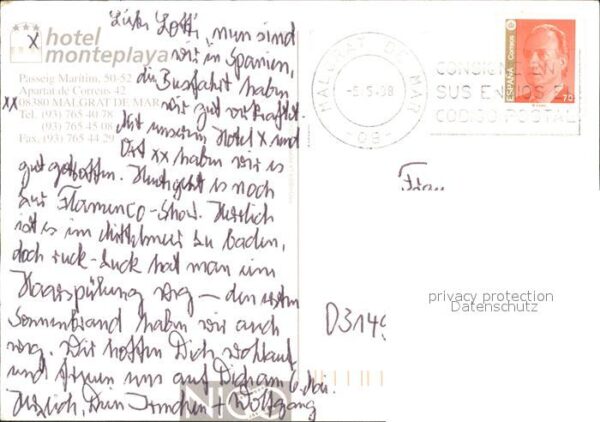 hotel
monteplaya
Passeig Marítim, 50-52
Apartat de Correus 42
08380 MALGRAT DE MAR
Tel. (93) 765 40 78
(93) 765 45 08
Fax. (93) 765 44 29
x
xx
Liebe Lotti, nun sind
wir in Spanien,
die Busfahrt haben
wir gut verkraftet.
Mit unserem Hotel x und
Ort xx haben wir es
gut getroffen. Heute geht es noch
zur Flamenco-Show. Herrlich
ist es im Mittelmeer zu baden,
doch ruck-zuck hat man eine
Haarspülung weg – den ersten
Sonnenbrand haben wir auch
weg. Wir hoffen Dich wohlauf
und freuen uns auf Dich am 6. Mai.
Herzlich, Dein Irmchen + Wolfgang
MALGRAT DE MAR
-08-
CONSIGNE EN
SUS ENVIOS EL
CODIGO POSTAL
ESPAÑA
Correos
70
Frau
D3149
privacy protection
Datenschutz